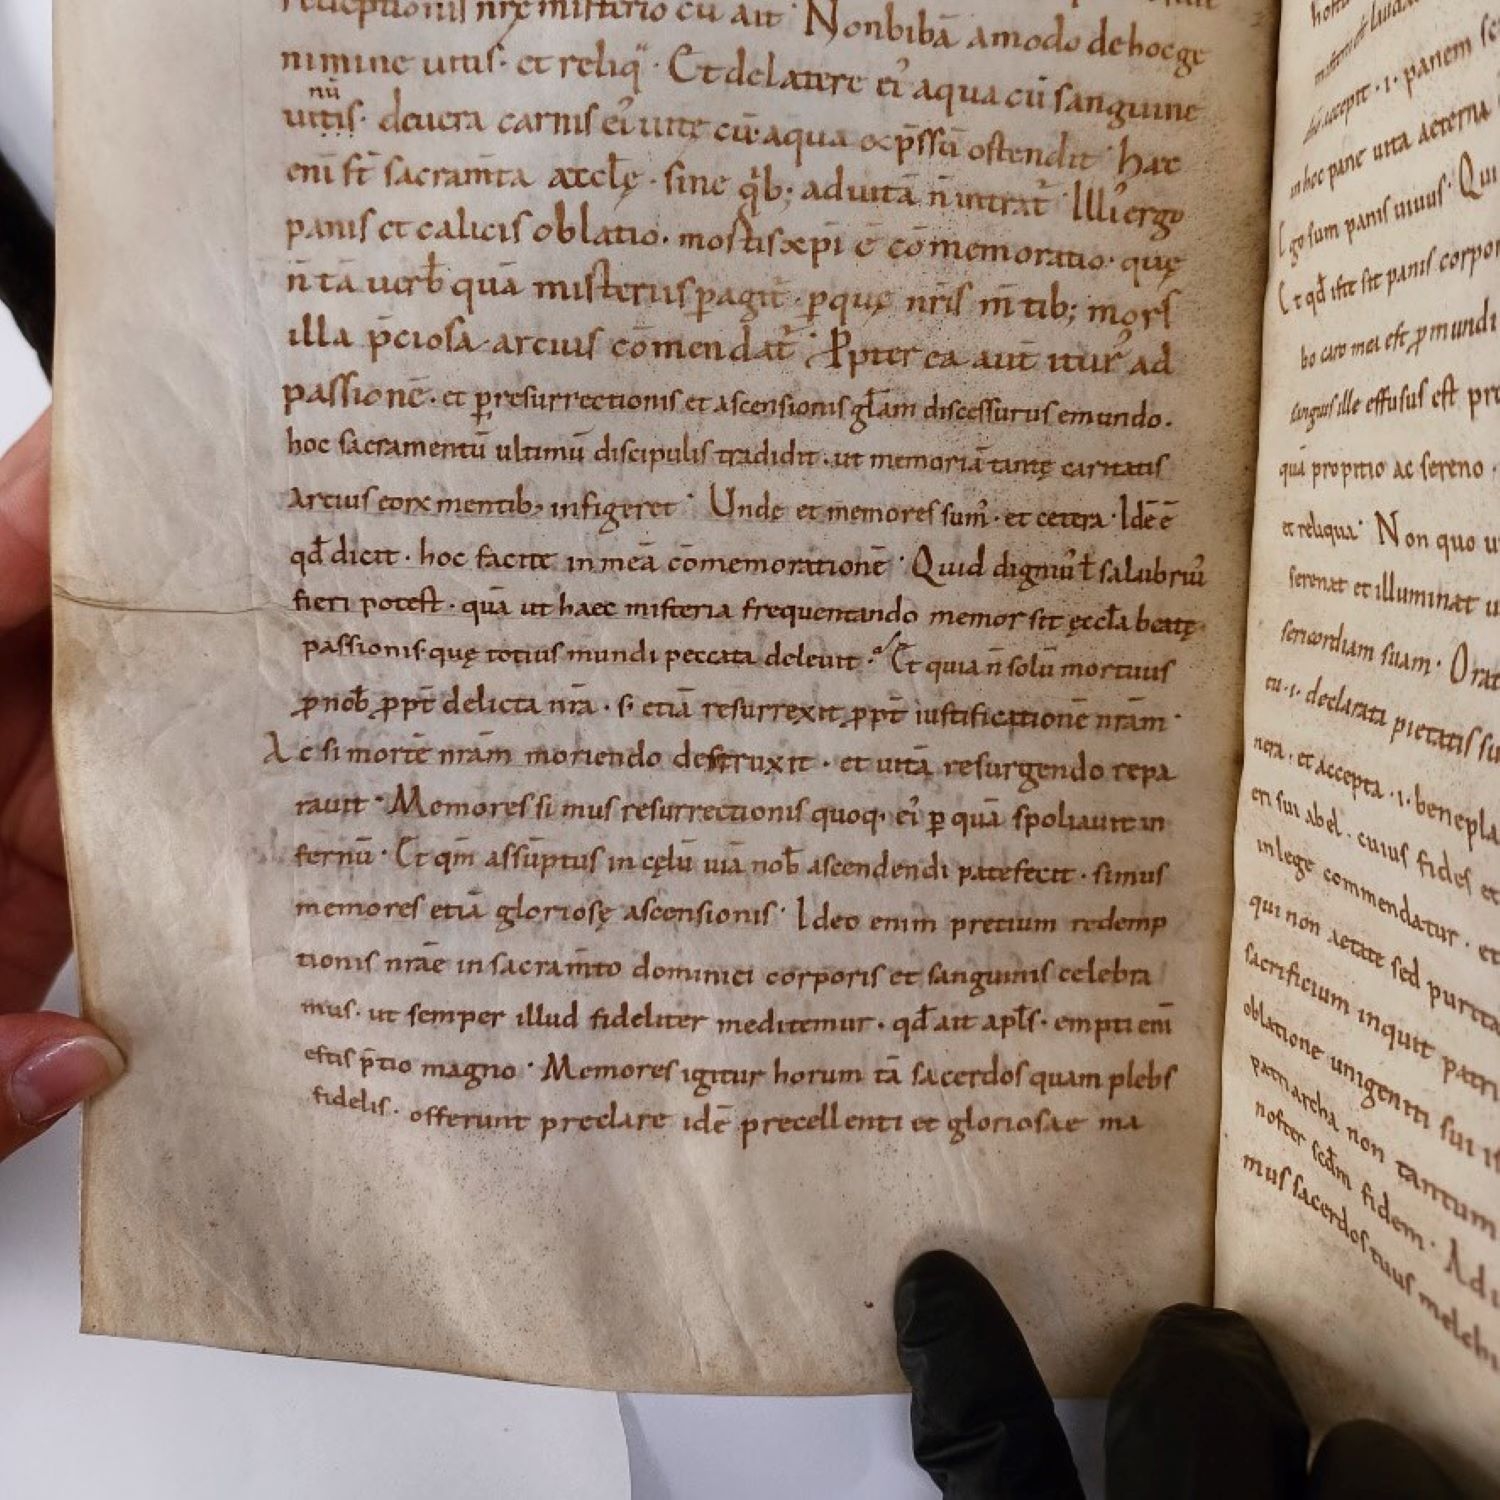 redeptionis nrę misterio cū ait · Non bibā amodo de hoc ge
nimine uitis · et reliq̈ · Et de latere ei᾽ aqua cū sanguine
nū
uitis · de uera carnis ei᾽ uite cū aqua exp̄ssū ostendit · haec
eni st̄ sacram̄ta aeccl̄ę · sine q̊b; ad uitā n̄ intrat᾽ · Illi᾽ ergo
panis et calicis oblatio · mortis xp̄i ē cōmemoratio · quę
n̄ tā uerb̄ quā misteriis ꝑagit᾽ · ꝑ quę nr̄is m̄tib; mors
illa p̄ciosa arcius cōmendat᾽ · Ꝓpter ea aut̄ itur᾽ ad
passionē · et ꝑ resurrectionis et ascensionis gl̄am discessurus e mundo ·
hoc sacramentū ultimū discipulis tradidit · ut memoriā tantę caritatis
artius eorꝝ mentib; infigeret · Unde et memores sum᾽ · et cetera · Idē ē
qd̄ dicit · hoc facite in meā cōmemorationē · Quid digniu᾽ t̄ salubriu᾽
fieri potest · quā ut haec misteria frequentando memor sit ęccl̄a beatę
passionis · quę totius mundi peccata deleuit · Et quia n̄ solū mortuus
ꝓ nob̄ ꝓpt̄ delicta nr̄a · s; etiā resurrexit ꝓpt̄ iustificationē nr̄am ·
Ac si mortē nr̄am moriendo destruxit · et uitā resurgendo repa
rauit · Memores simus resurrectionis quoq; ei᾽ ꝑ quā spoliauit in
fernū · Et qm̄ assūptus in cęlū uiā nob̄ ascendendi patefecit · simus
memores etiā gloriosę ascensionis · Ideo enim pretium redemp
tionis nr̄ae in sacram̄to dominici corporis et sanguinis celebra
mus · ut semper illud fideliter meditemur · qd̄ ait apl̄s · empti eni
estis p̄tio magno · Memores igitur horum tā sacerdos quam plebs
fidelis · offerunt preclare idē precellenti et gloriosae ma
accepit · i · panem
in hoc pane uita aeterna
go sum panis uiuus · Qui
Et qd̄ iste sit panis corpor
bo caro mea est ꝓ mundi
sanguis ille effusus est pro
quā propitio ac sereno ·
et reliqua · Non quo u
serenat et illuminat u
sericordiam suam · Orat
tu · i · declarata pietatis su
nera · et accepta · i · benepla
eri sui abel · cuius fides et
in lege commendatur · et
qui non aetate sed purita
sacrificium inquit patri
oblatione unigeniti sui is
patriarcha non tantum
noster scd̄m fidem · Adu
mus sacerdos tuus melchi